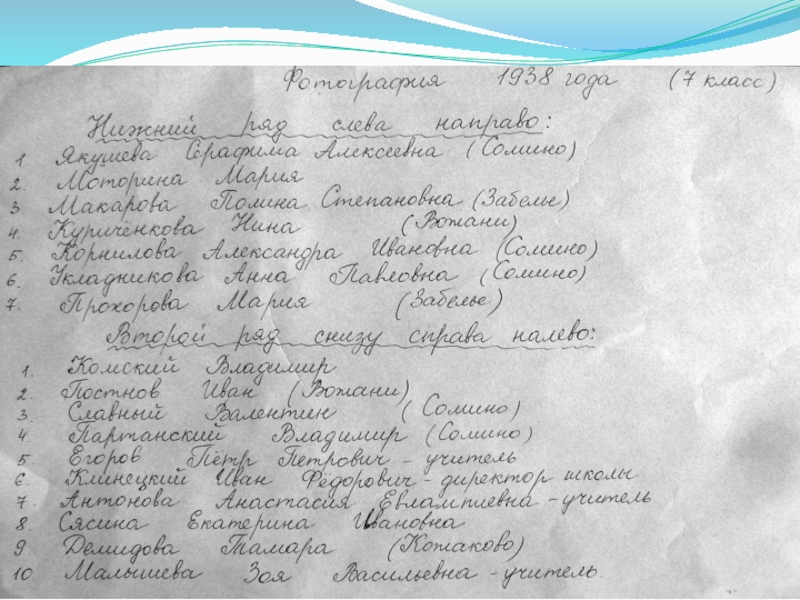 Фотография 1938 года (7 класс)
Нижний ряд слева направо:
1 Якушева Серафима Алексеевна (Сомино)
2. Моторина Мария
3 Макарова Полина Степановна (Забелье)
4. Куричёнкова Нина (Вожани)
5. Корнилова Александра Ивановна (Сомино)
6. Укладникова Анна Павловна (Сомино)
7. Прохорова Мария (Забелье)
Второй ряд снизу справа налево:
1. Комский Владимир
2. Постнов Иван (Вожани)
3. Славный Валентин (Сомино)
4. Партанский Владимир (Сомино)
5. Егоров Пётр Петрович - учитель
6. Клинецкий Иван Фёдорович - директор школы
7. Антонова Анастасия Евлампиевна - учитель
8. Сясина Екатерина Ивановна
9 Демидова Тамара (Кожаково)
10 Малышева Зоя Васильевна - учитель.